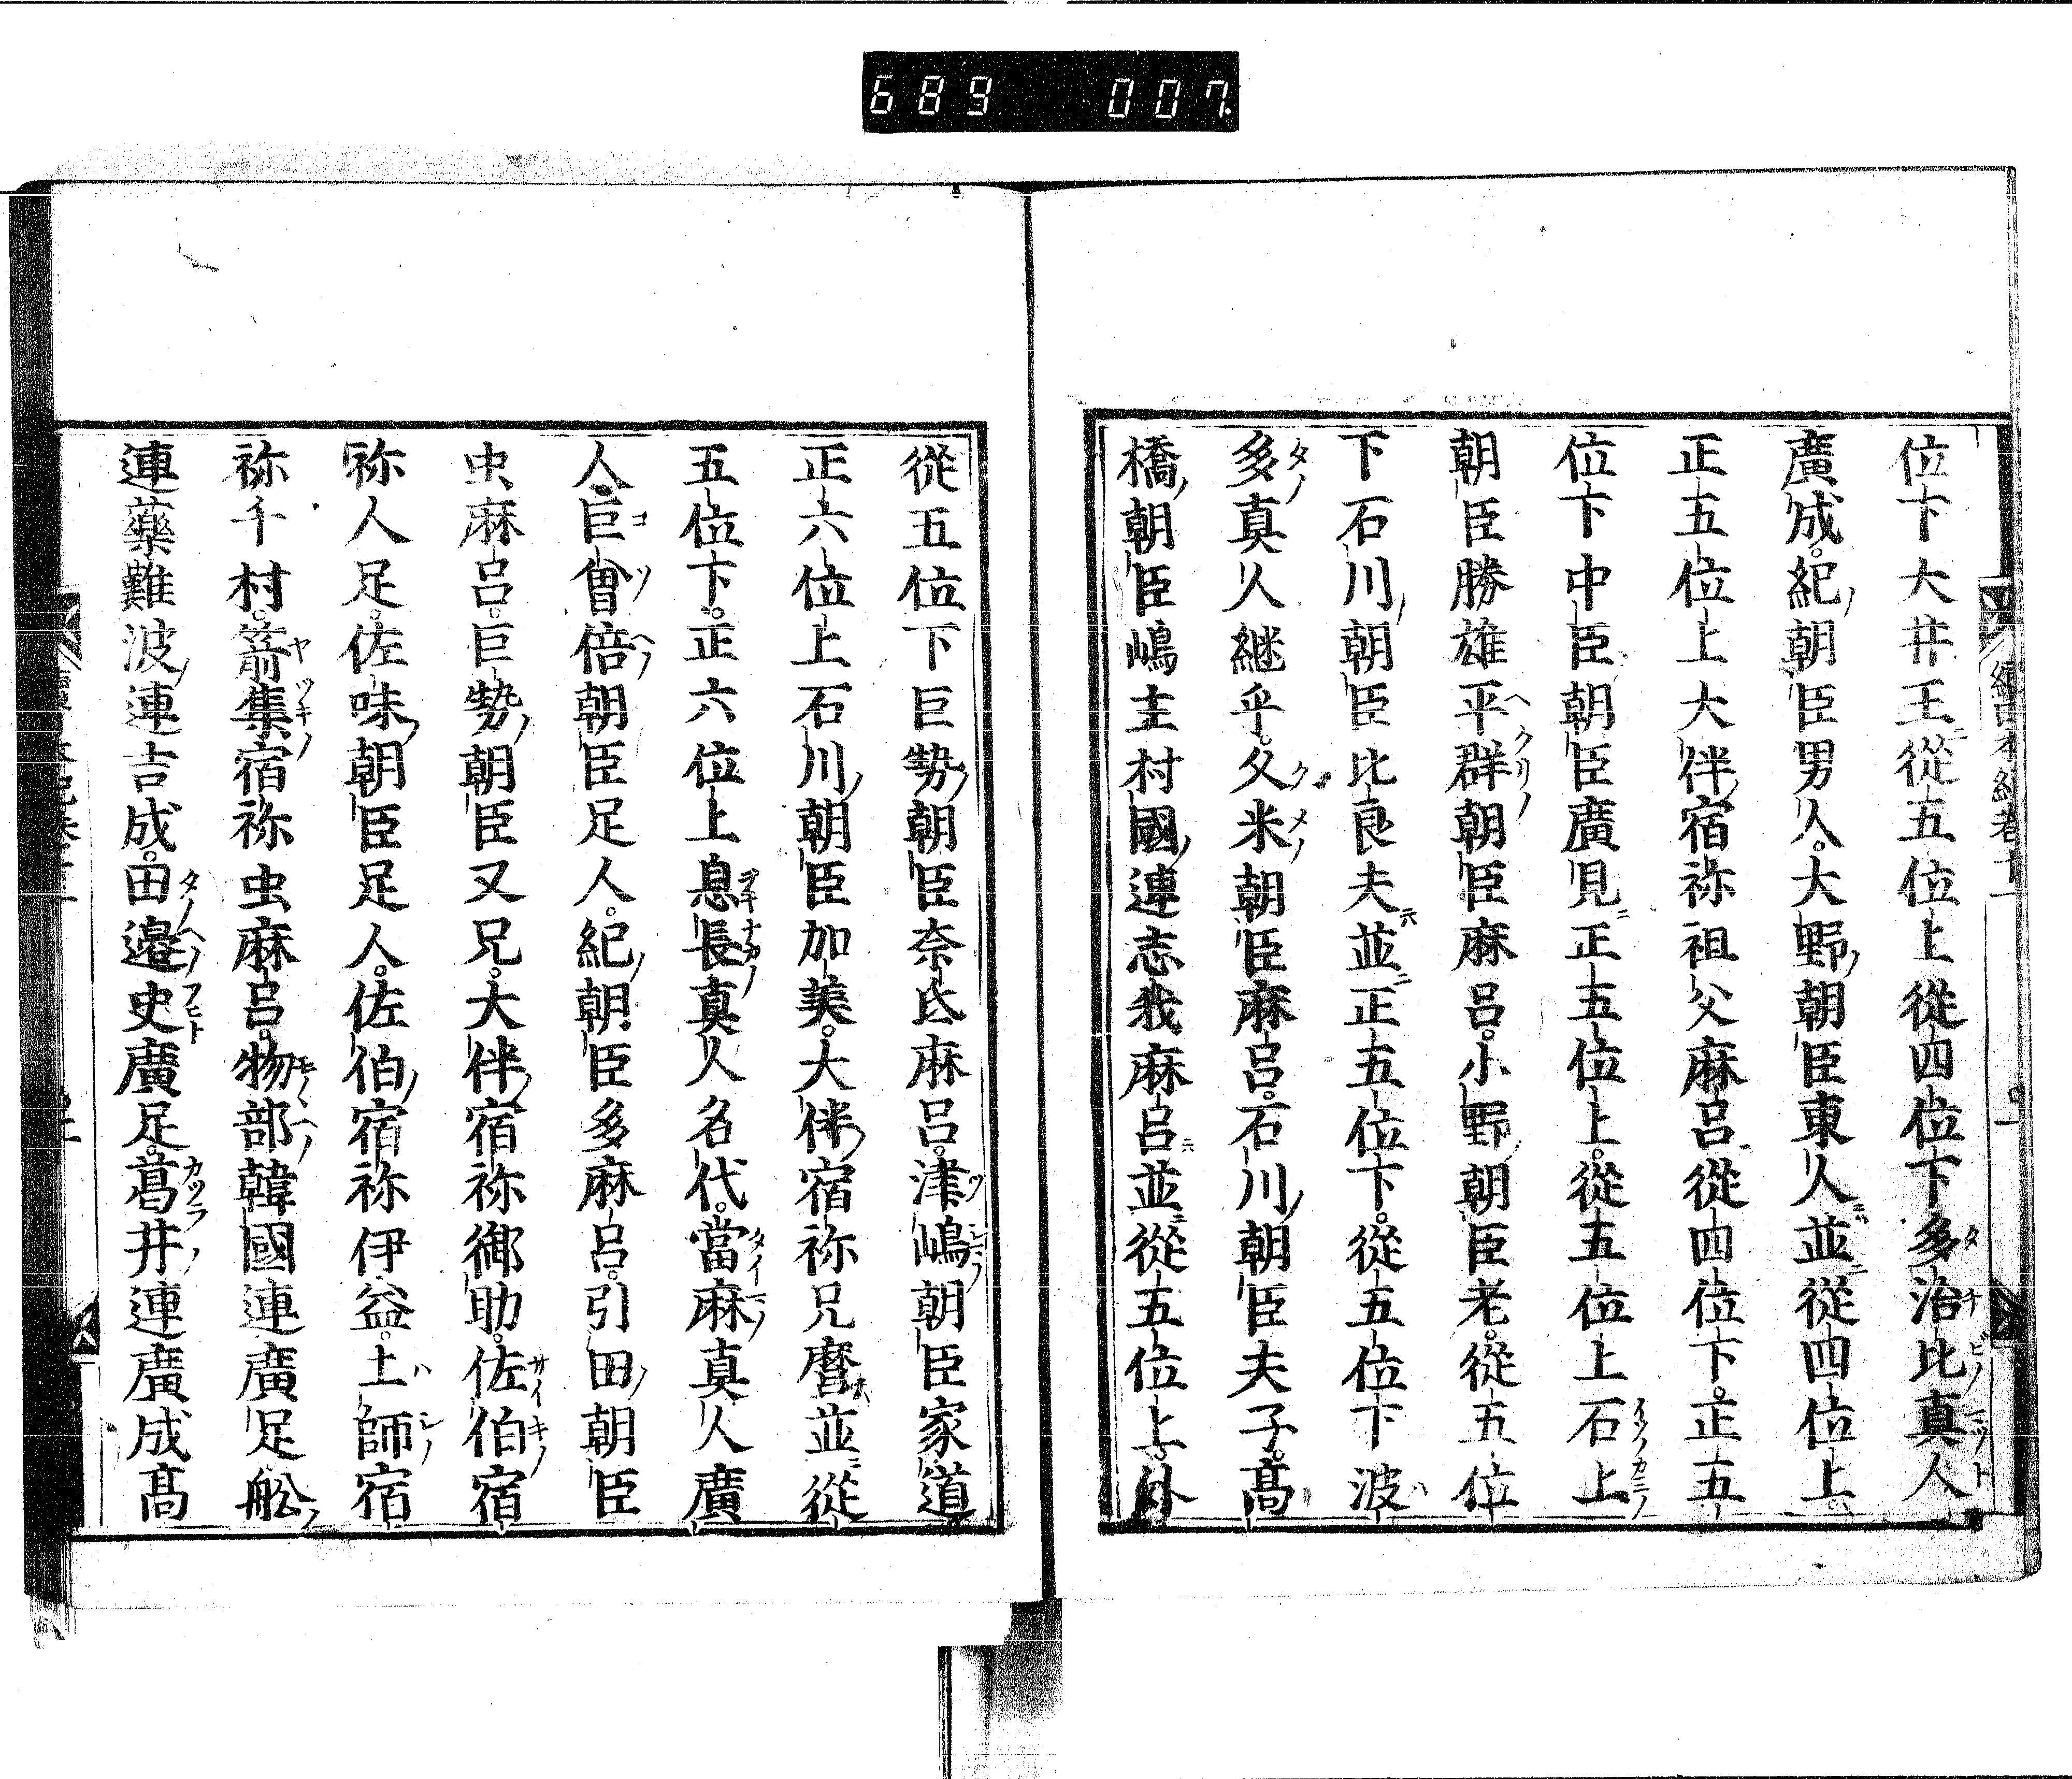 689 007
位下大井王從五位上從四位下多治比真人
廣成。紀朝臣男人。大野朝臣東人並從四位上。
正五位上大伴宿祢祖父麻呂從四位下。正五
位下中臣朝臣廣見正五位上。從五位上石上
朝臣勝雄平群朝臣麻呂。小野朝臣老。從五位
下石川朝臣比良夫並正五位下。從五位下波
多真人継乎。久米朝臣麻呂。石川朝臣夫子。髙
橋朝臣嶋主村國連志我麻呂並從五位上。外
從五位下巨勢朝臣奈氐麻呂。津嶋朝臣家道
正六位上石川朝臣加美。大伴宿祢兄麿並從
五位下。正六位上息長真人名代。當麻真人廣
人。巨曾倍朝臣足人。紀朝臣多麻呂。引田朝臣
虫麻呂。巨勢朝臣又兄。大伴宿祢御助。佐伯宿
祢人足。佐味朝臣足人。佐伯宿祢伊益。土師宿
祢千村。箭集宿祢虫麻呂。物部韓國連廣足舩
連藥難波連吉成。田邉史廣足。葛井連廣成髙